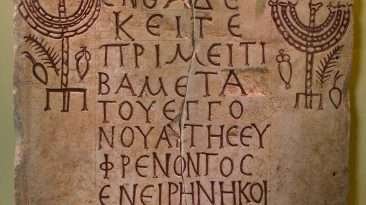 ΕΝΘΑΔΕ
ΚΕΙΤΕ
ΠΡΙΜΕΙΤΙ
ΒΑΜΕΤΑ
ΤΟΥΕΓΓΟ
ΝΟΥΑΥΤΗΕΕΥ
ΦΡΕΝΟΝΤΟΣ
ΕΝΕΙΡΗΝΗΚΟΙ